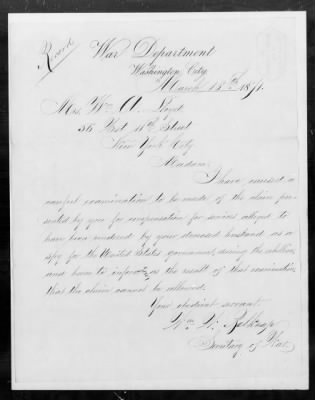 Record
War Department
Washington City
March 13th 1871.
Mrs. Wm A. Lloyd
36 East 11th Street
New York City
Madam:
I have caused a
careful examination to be made of the claim pre-
sented by you for compensation for services alleged to
have been rendered by your deceased husband as a
spy for the United States government, during the rebellion,
and have to inform you as the result of that examination
that the claim cannot be allowed.
Your obedient servant
Wm W. Belknap
Secretary of War.